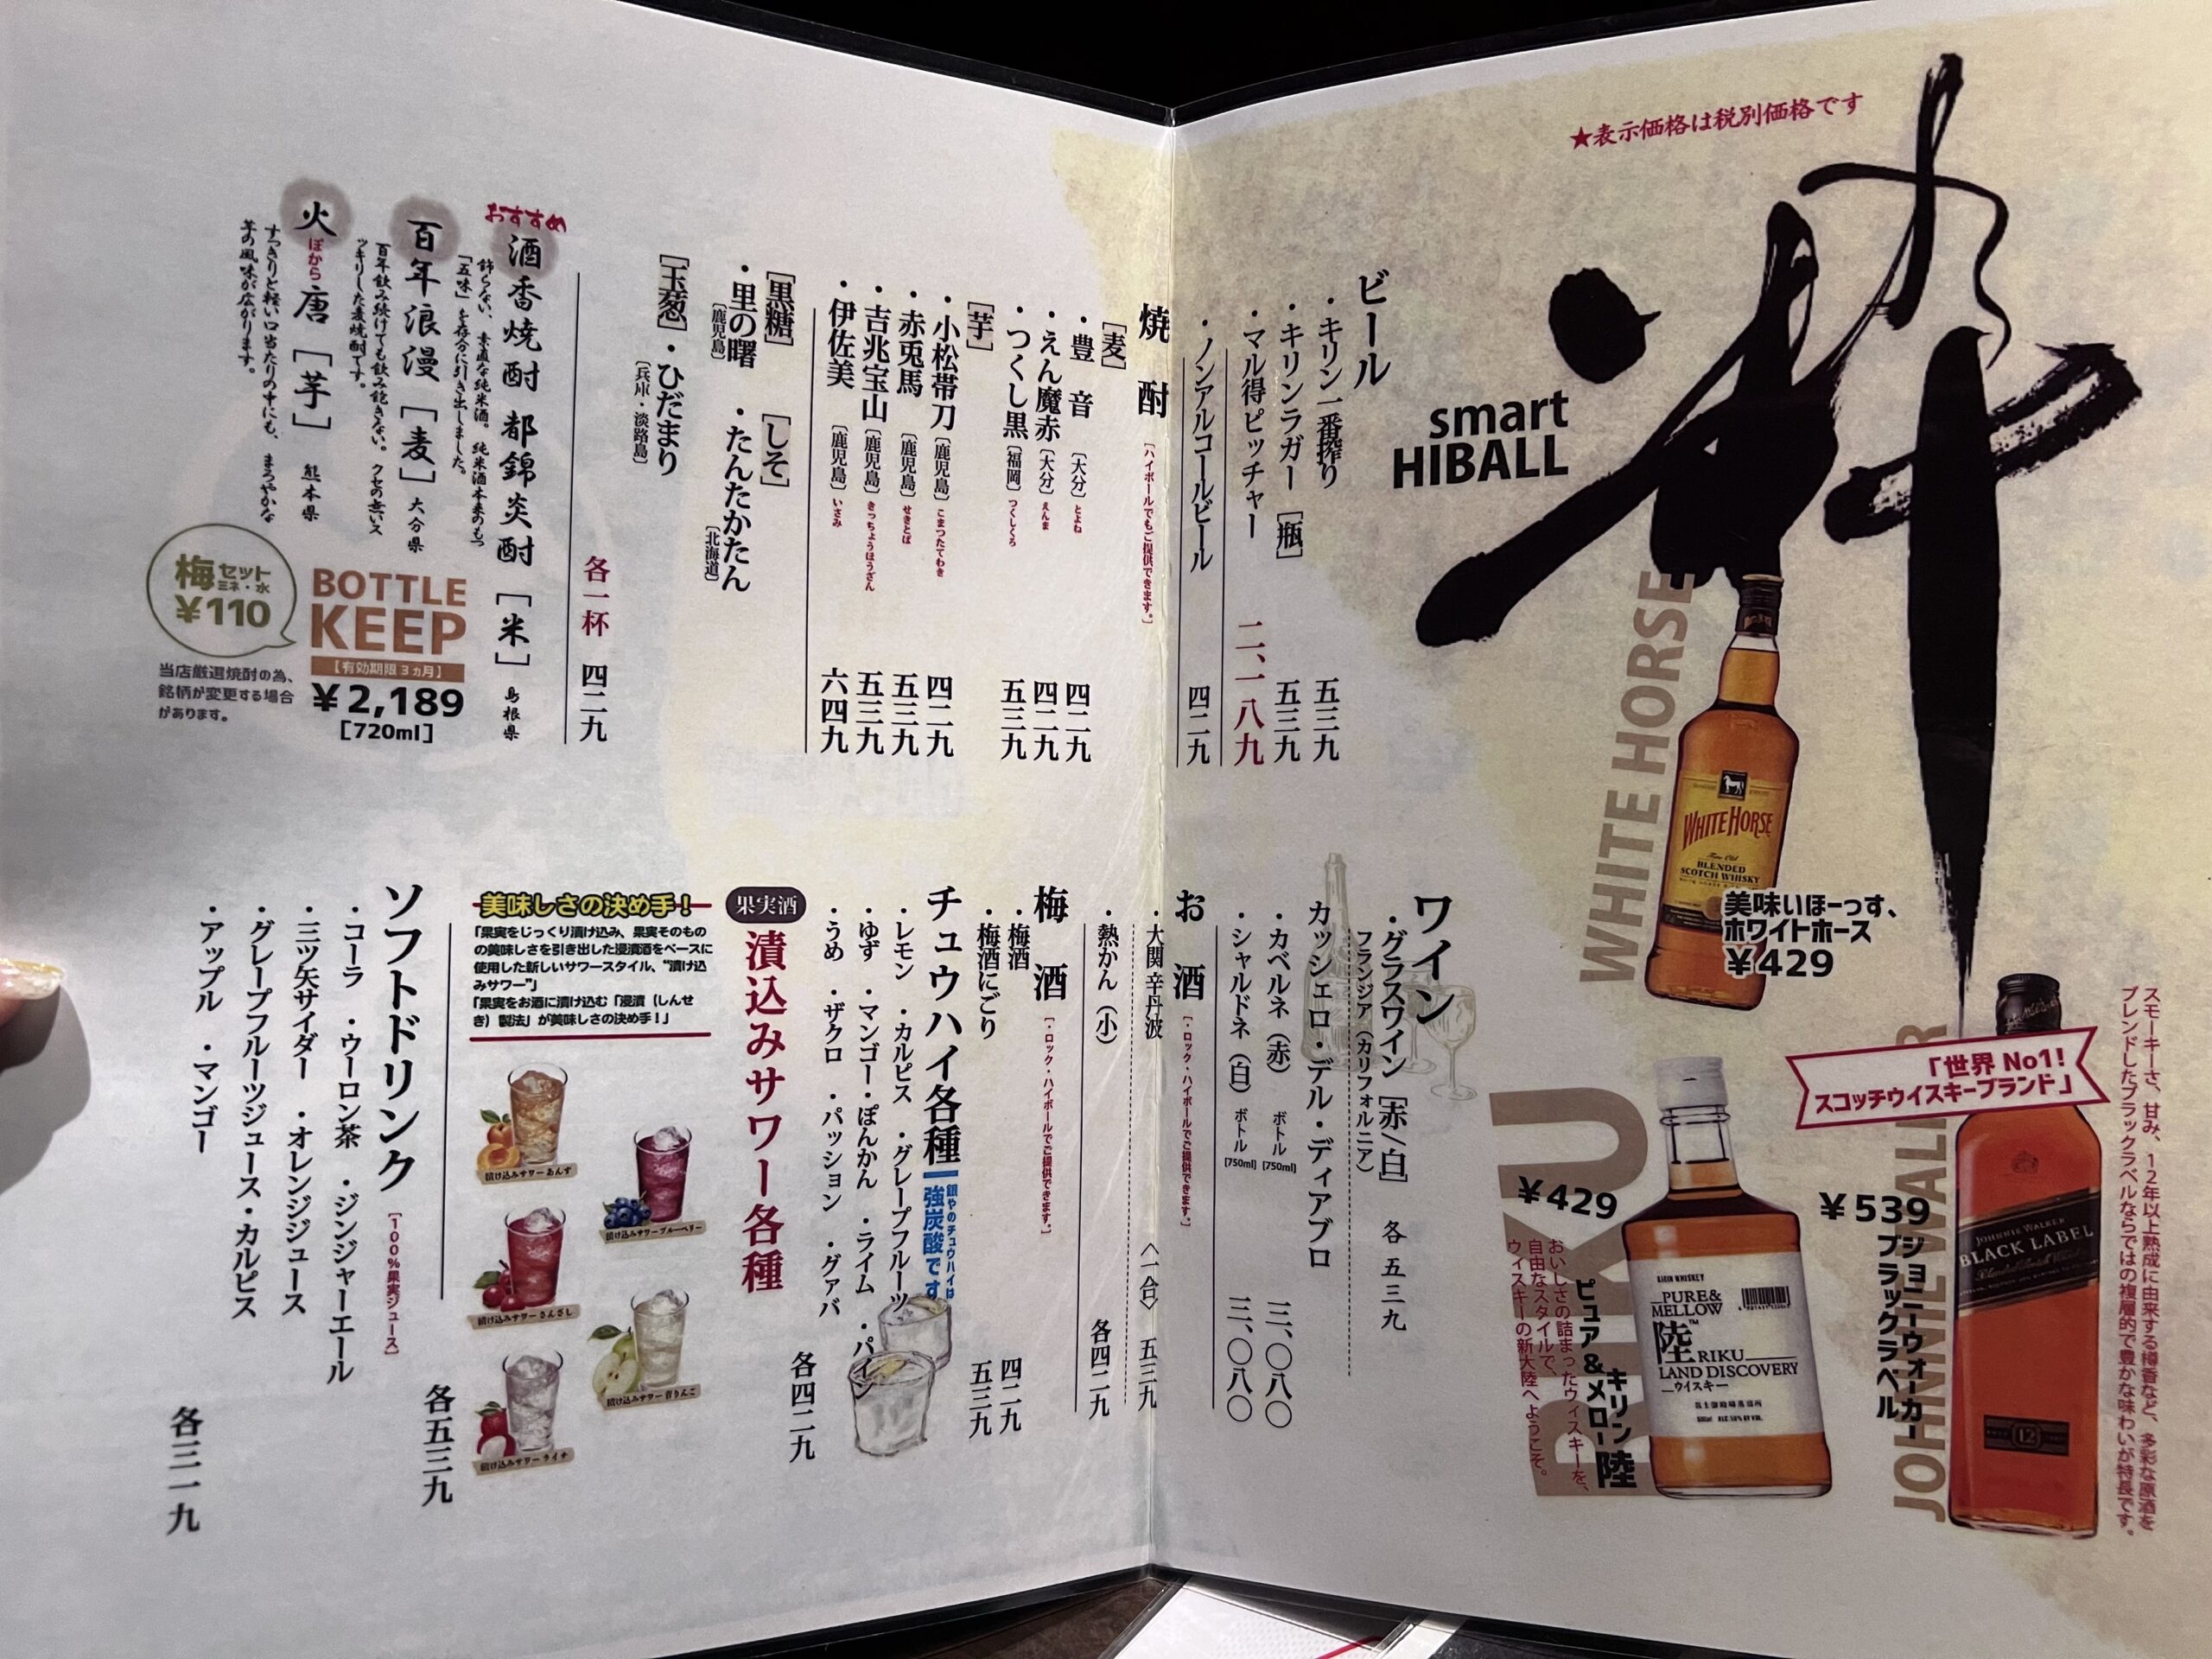 ★表示価格は税別価格です
粋
smart
HIBALL
WHITE HORSE
WHITE HORSE
Fine Old
BLENDED
SCOTCH WHISKY
美味いほーっす、
ホワイトホース
¥429
スモーキーさ、甘み、12年以上熟成に由来する樽香など、多彩な原酒を
ブレンドしたブラックラベルならではの複層的で豊かな味わいが特長です。
「世界 No1!
スコッチウイスキーブランド」
JOHNNIE WALKER
BLACK LABEL
12
¥539
ジョニーウォーカー
ブラックラベル
RIKU
KIRIN WHISKEY
PURE&
MELLOW
陸
RIKU
LAND DISCOVERY
ウイスキー
¥429
キリン 陸
ピュア&メロー
おいしさの詰まったウィスキーを、
自由なスタイルで、
ウィスキーの新大陸へようこそ。
ビール
・キリン一番搾り 五三九
・キリンラガー [瓶] 五三九
・マル得ピッチャー 二、一八九
・ノンアルコールビール 四二九
焼酎 [ハイボールでもご提供できます。]
[麦]
・豊音 [大分] とよね 四二九
・えん魔赤 [大分] えんま 四二九
・つくし黒 [福岡] つくしくろ 五三九
[芋]
・小松帯刀 [鹿児島] こまつたてわき 四二九
・赤兎馬 [鹿児島] せきとば 五三九
・吉兆宝山 [鹿児島] きっちょうほうざん 五三九
・伊佐美 [鹿児島] いさみ 六四九
[黒糖]
・里の曙 [鹿児島]
[しそ]
・たんたかたん [北海道]
[玉葱]
・ひだまり [兵庫・淡路島]
各一杯 四二九
おすすめ
酒香焼酎 都錦炎酎 [米] 島根県
飾らない、素直な純米酒。純米酒本来のもつ
「五味」を存分に引き出しました。
百年浪漫 [麦] 大分県
百年飲み続けても飲み飽きない。クセの無いス
ッキリした麦焼酎です。
火唐 [芋] 熊本県
ぽから
すっきりと軽い口当たりの中にも、まろやかな
芋の風味が広がります。
BOTTLE
KEEP
【有効期限3ヵ月】
¥2,189
[720ml]
梅セット
ミネ・水
¥110
当店厳選焼酎の為、
銘柄が変更する場合
があります。
ワイン
・グラスワイン [赤/白] 各五三九
フランジア(カリフォルニア)
カッシェロ・デル・ディアブロ
・カベルネ(赤) ボトル [750ml] 三、〇八〇
・シャルドネ(白) ボトル [750ml] 三、〇八〇
お酒 [・ロック・ハイボールでご提供できます。]
・大関 辛丹波 〈一合〉 五三九
・熱かん(小) 各四二九
梅酒 [・ロック・ハイボールでご提供できます。]
・梅酒 四二九
・梅酒にごり 五三九
チュウハイ各種
銀やのチュウハイは
強炭酸です
・レモン ・カルピス ・グレープフルーツ
・ゆず ・マンゴー ・ぽんかん ・ライム ・パイン
・うめ ・ザクロ ・パッション ・グァバ
各四二九
果実酒
漬込みサワー各種
美味しさの決め手!
「果実をじっくり漬け込み、果実そのもの
の美味しさを引き出した浸漬酒をベースに
使用した新しいサワースタイル、“漬け込
みサワー”」
「果実をお酒に漬け込む「浸漬(しんせ
き)製法」が美味しさの決め手!」
漬け込みサワー あんず
漬け込みサワー ブルーベリー
漬け込みサワー さんざし
漬け込みサワー 青りんご
漬け込みサワー ライチ
各五三九
ソフトドリンク [100%果実ジュース]
・コーラ ・ウーロン茶 ・ジンジャーエール
・三ツ矢サイダー ・オレンジジュース
・グレープフルーツジュース ・カルピス
・アップル ・マンゴー
各三一九